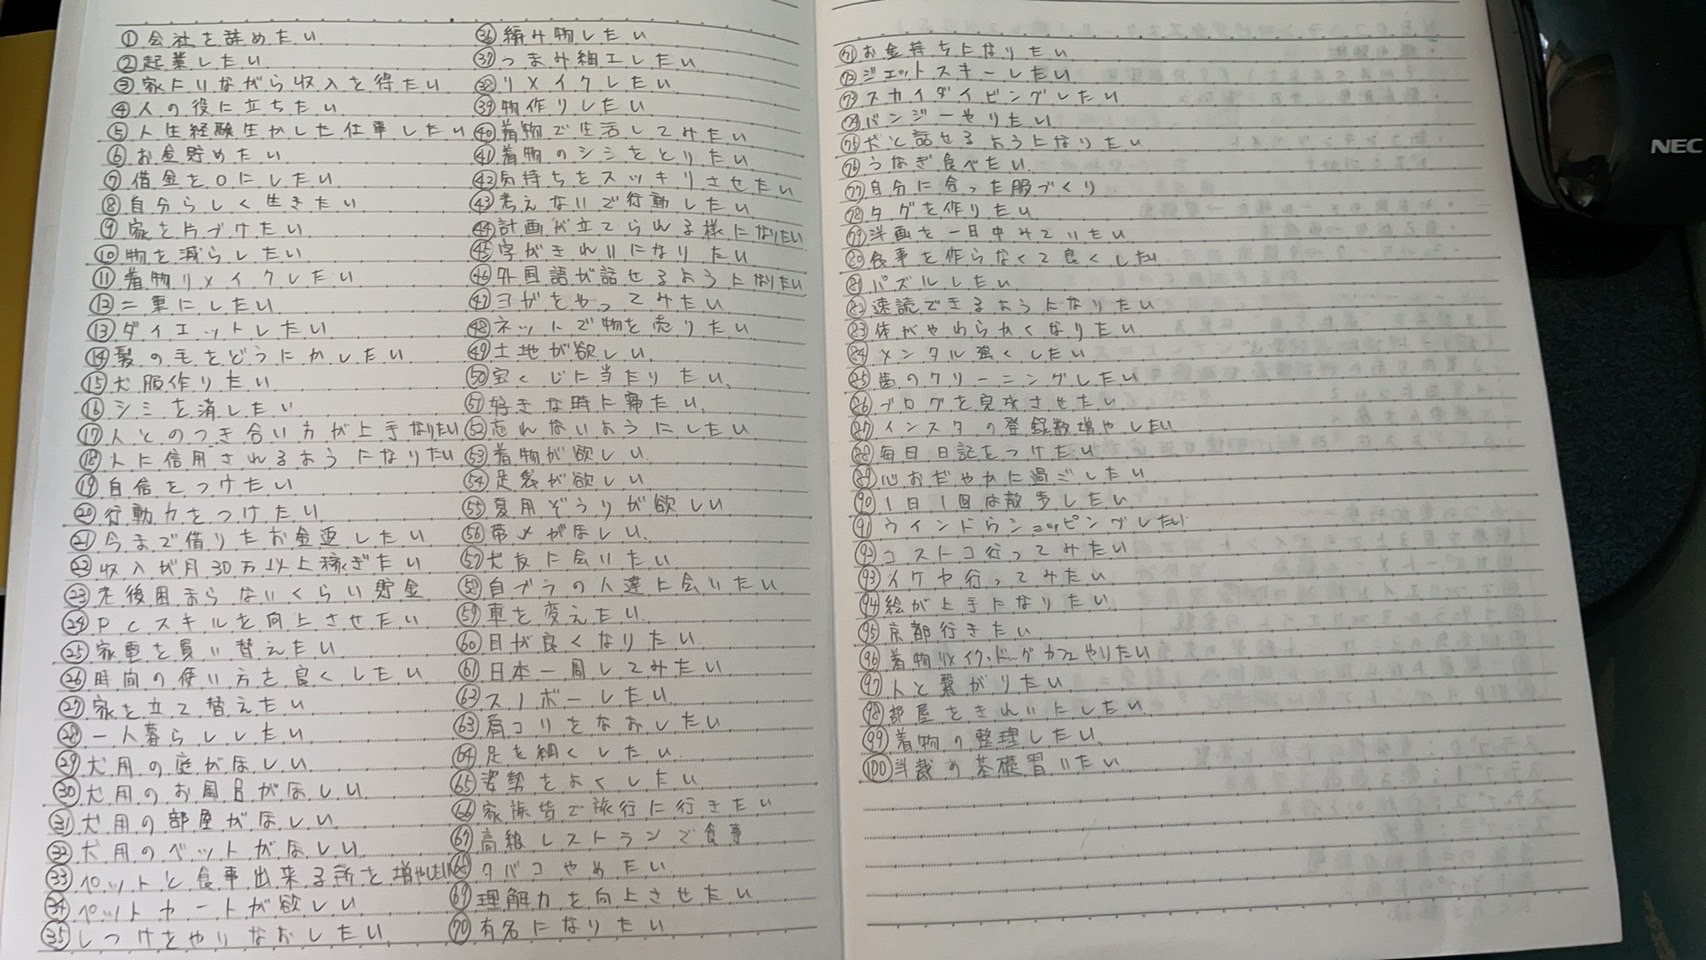 ①会社を辞めたい
②起業したい
③家にいながら収入を得たい
④人の役に立ちたい
⑤人生経験生かした仕事したい
⑥お金貯めたい
⑦借金を0にしたい
⑧自分らしく生きたい
⑨家を片づけたい
⑩物を減らしたい
⑪着物リメイクしたい
⑫二重にしたい
⑬ダイエットしたい
⑭髪の毛をどうにかしたい
⑮犬服作りたい
⑯シミを消したい
⑰人とのつき合い方が上手なりたい
⑱人に信用されるようになりたい
⑲自信をつけたい
⑳行動力をつけたい
㉑今まで借りたお金返したい
㉒収入が月30万以上稼ぎたい
㉓老後困まらないくらい貯金
㉔PCスキルを向上させたい
㉕家電を買い替えたい
㉖時間の使い方を良くしたい
㉗家を立て替えたい
㉘一人暮らししたい
㉙犬用の庭がほしい
㉚犬用のお風呂がほしい
㉛犬用の部屋がほしい
㉜犬用のベットがほしい
㉝ペットと食事出来る所を増やしたい
㉞ペットカートが欲しい
㉟しつけをやりなおしたい
㊱編み物したい
㊲つまみ細工したい
㊳リメイクしたい
㊴物作りしたい
㊵着物で生活してみたい
㊶着物のシミをとりたい
㊷気持ちをスッキリさせたい
㊸考えないで行動したい
㊹計画が立てられる様になりたい
㊺字がきれいになりたい
㊻外国語が話せるようになりたい
㊼ヨガをやってみたい
㊽ネットで物を売りたい
㊾土地が欲しい
㊿宝くじに当たりたい
51好きな時に寝たい
52忘れないようにしたい
53着物が欲しい
54足袋が欲しい
55夏用ぞうりが欲しい
56帯〆がほしい
57犬友に会いたい
58自ブラの人達に会いたい
59車を変えたい
60目が良くなりたい
61日本一周してみたい
62スノボーしたい
63肩コリをなおしたい
64足を細くしたい
65姿勢をよくしたい
66家族皆で旅行に行きたい
67高級レストランで食事
68タバコやめたい
69理解力を向上させたい
70有名になりたい
71お金持ちになりたい
72ジェットスキーしたい
73スカイダイビングしたい
74バンジーやりたい
75犬と話せるようになりたい
76うなぎ食べたい
77自分に合った服づくり
78タグを作りたい
79洋画を一日中みていたい
80食事を作らなくて良くしたい
81パズルしたい
82速読できるようになりたい
83体がやわらかくなりたい
84メンタル強くしたい
85歯のクリーニングしたい
86ブログを完成させたい
87インスタの登録数増やしたい
88毎日日記をつけたい
89心おだやかに過ごしたい
90 1日1回は散歩したい
91ウインドウショッピングしたい
92コストコ行ってみたい
93イケヤ行ってみたい
94絵が上手になりたい
95京都行きたい
96着物リメイク・ドッグカフェやりたい
97人と繋がりたい
98部屋をきれいにしたい
99着物の整理したい
100洋裁の基礎習いたい
NEC